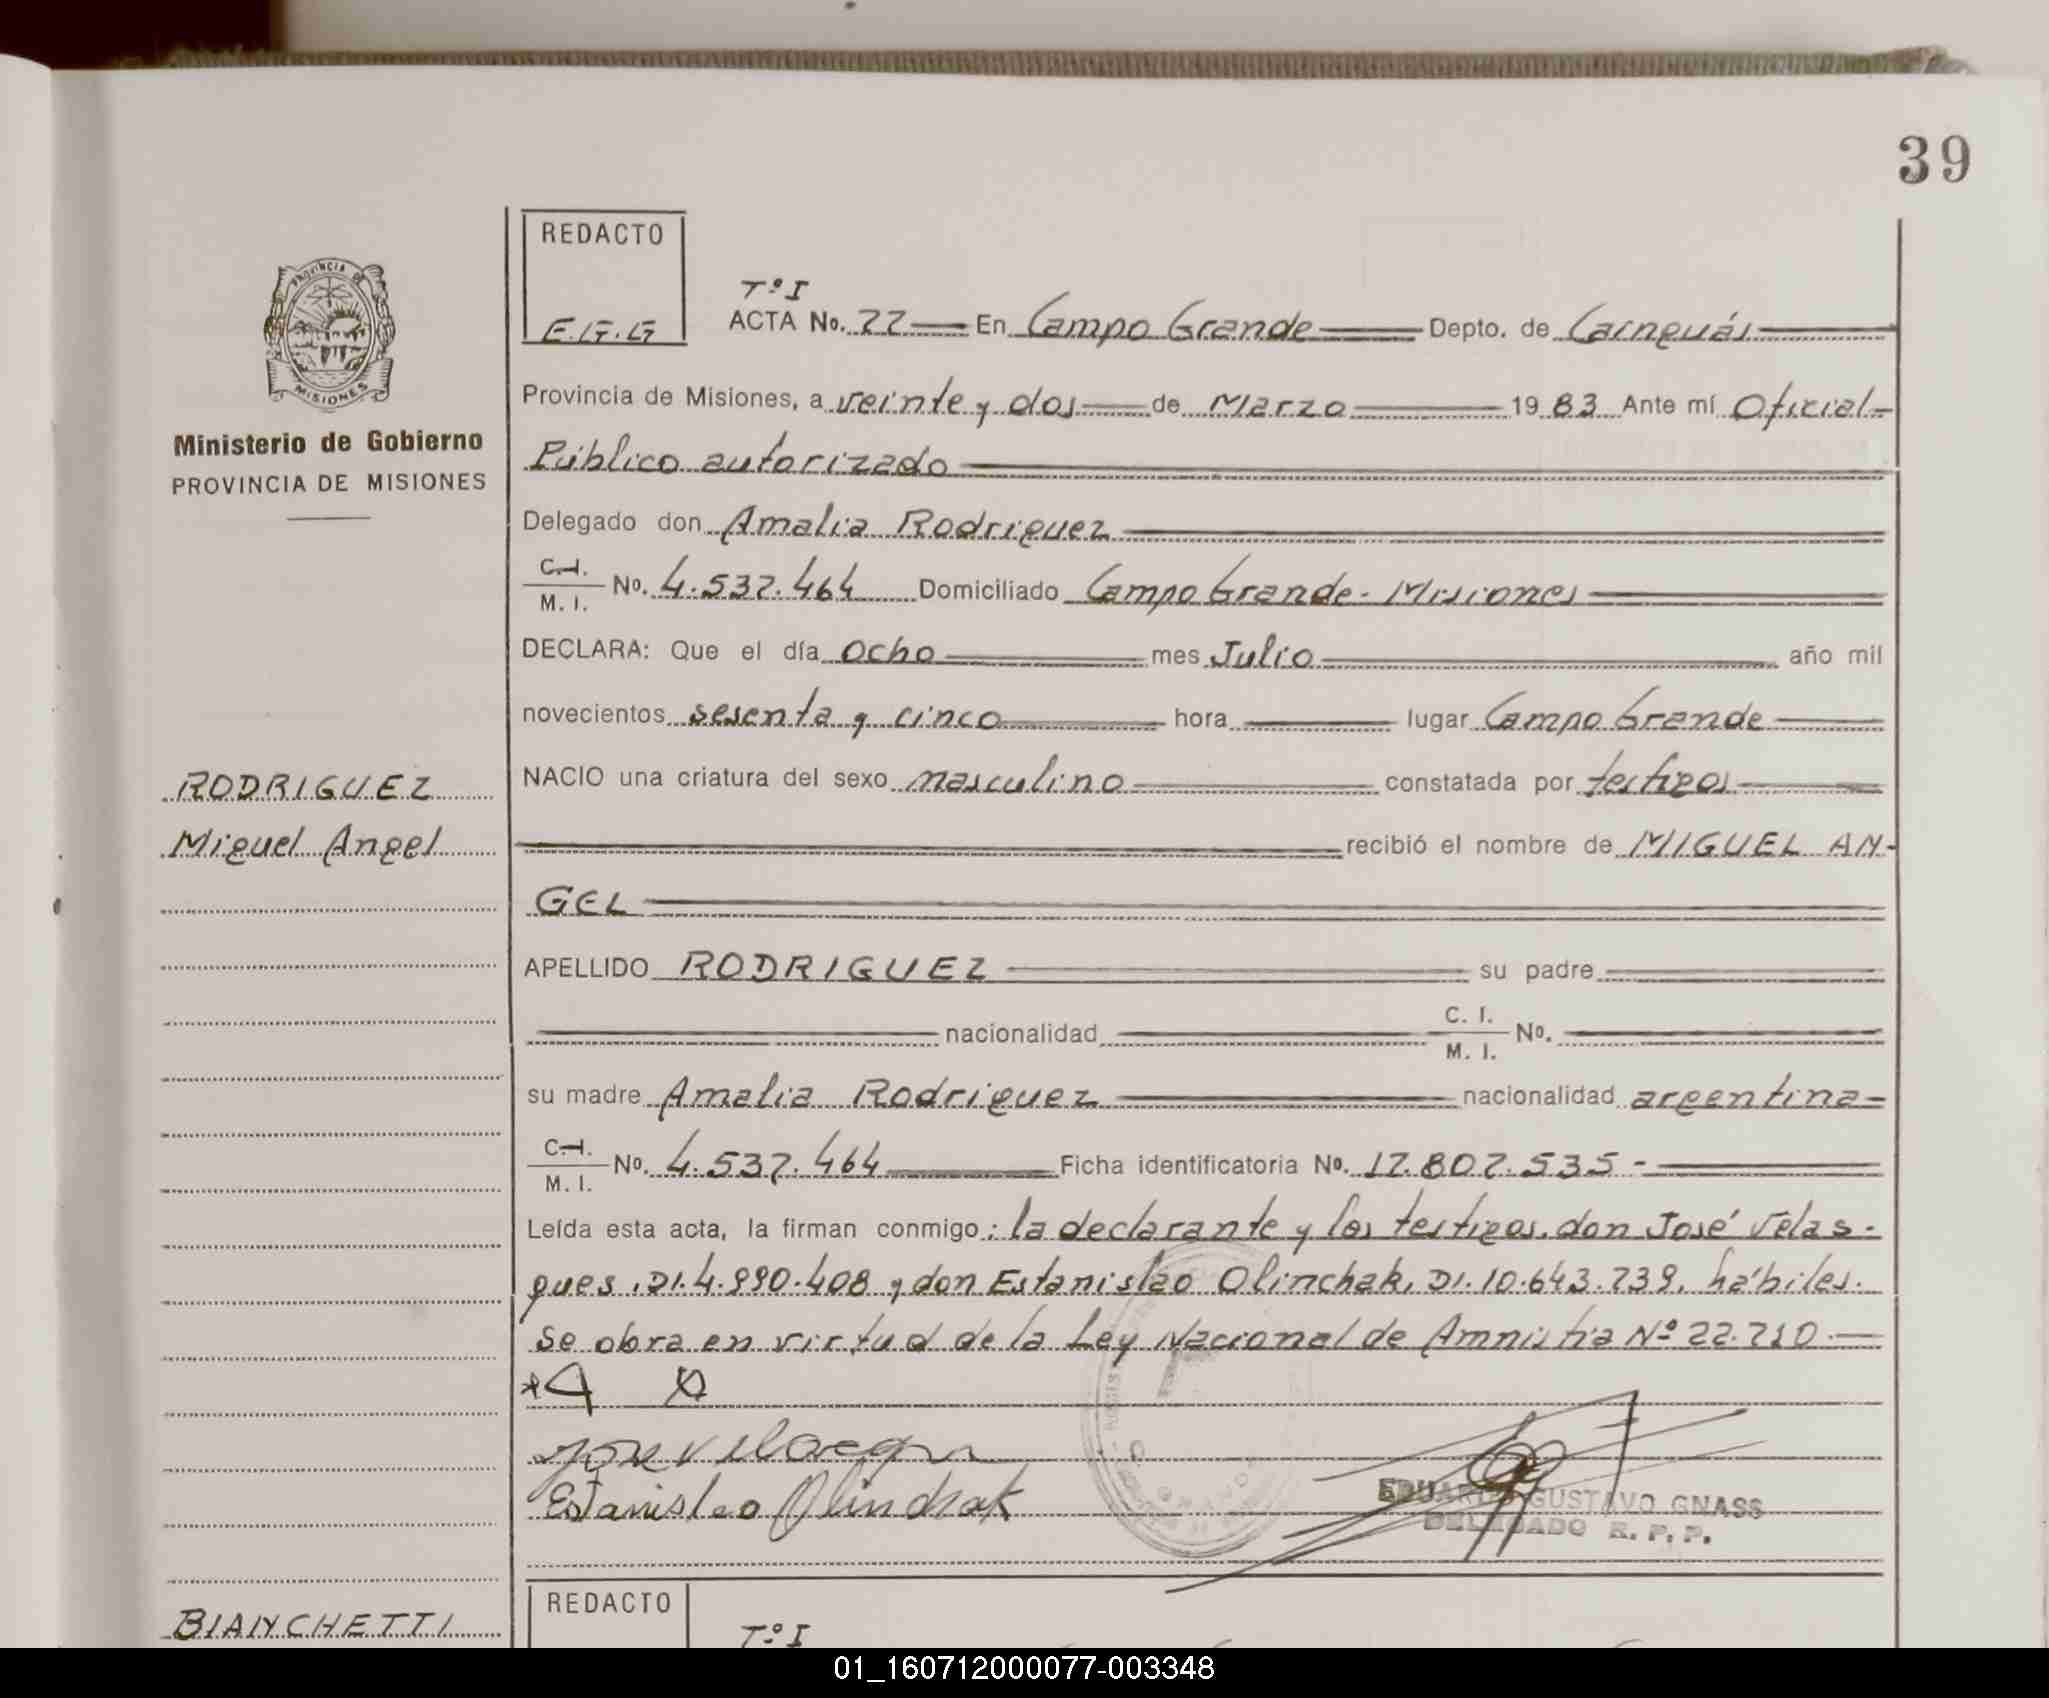 39
REDACTO
E.G.G
Tº I
ACTA No. 22 En Campo Grande Depto. de Cainguás
PROVINCIA DE
MISIONES
Ministerio de Gobierno
PROVINCIA DE MISIONES
Provincia de Misiones, a veinte y dos de Marzo 1983 Ante mí Oficial
Público autorizado
Delegado don Amalia Rodriguez
C.I.
M. I. No. 4.537.464 Domiciliado Campo Grande - Misiones
DECLARA: Que el día ocho mes Julio año mil
novecientos sesenta y cinco hora lugar Campo Grande
RODRIGUEZ
NACIO una criatura del sexo masculino constatada por testigos
Miguel Angel
recibió el nombre de MIGUEL AN-
GEL
APELLIDO RODRIGUEZ su padre
nacionalidad C. I. M. I. No.
su madre Amalia Rodriguez nacionalidad argentina
C.I.
M. I. No. 4.537.464 Ficha identificatoria No. 17.807.535 -
Leída esta acta, la firman conmigo: la declarante y los testigos, don José Velas-
ques, DI. 4.990.408 y don Estanislao Olinchak, DI. 10.643.739, hábiles.
Se obra en virtud de la Ley Nacional de Amnistía Nº 22.710.
Estanisleo Olinchak
EDUARDO GUSTAVO GNASS
DELEGADO R. P. P.
REDACTO
BIANCHETTI
Tº I
01_160712000077-003348